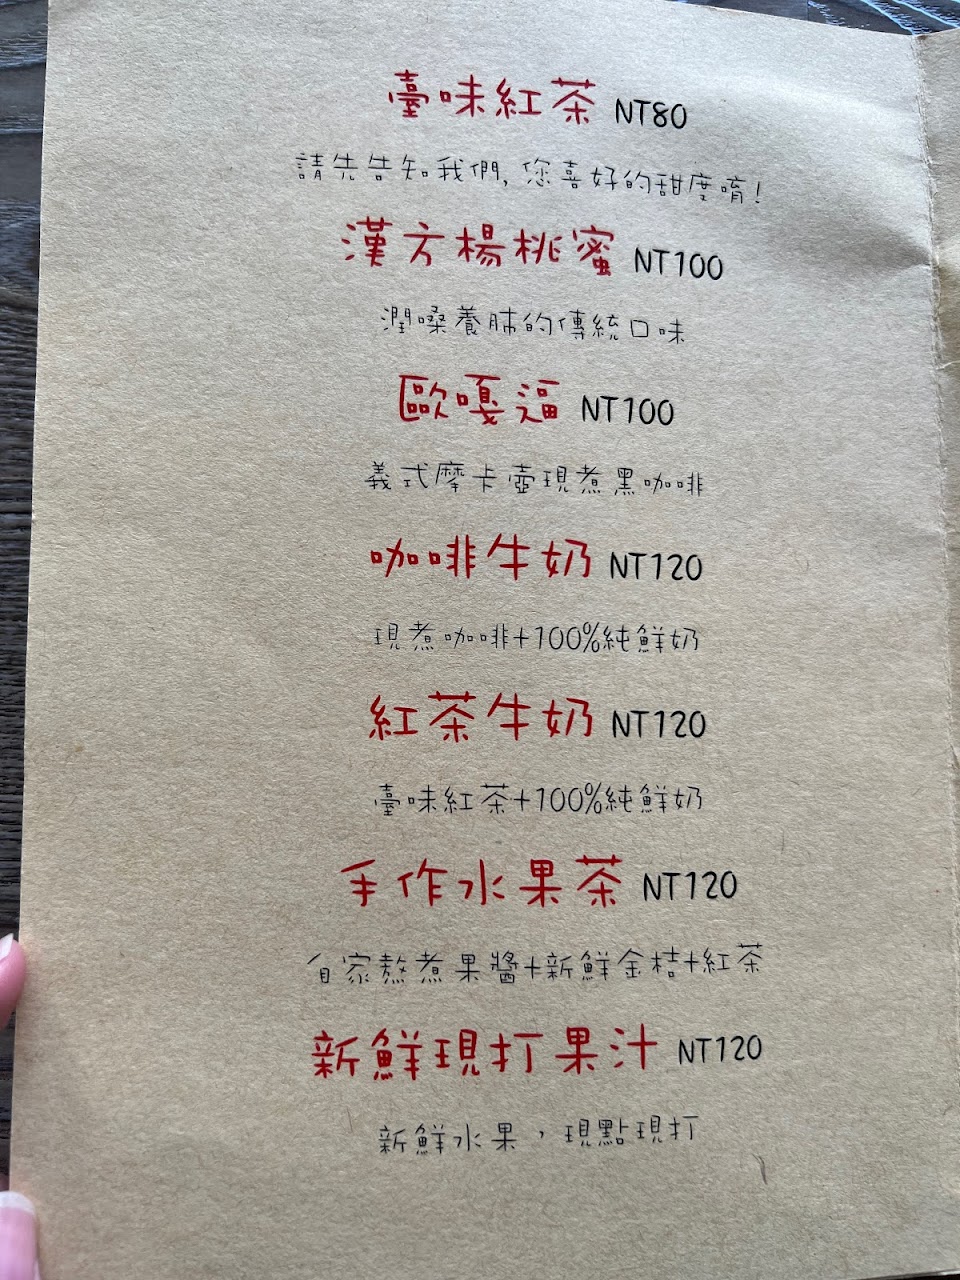 臺味紅茶 NT80
請先告知我們,您喜好的甜度唷!
漢方楊桃蜜 NT100
潤嗓養肺的傳統口味
歐嘎逼 NT100
義式摩卡壺現煮黑咖啡
咖啡牛奶 NT120
現煮咖啡+100%純鮮奶
紅茶牛奶 NT120
臺味紅茶+100%純鮮奶
手作水果茶 NT120
自家熬煮果醬+新鮮金桔+紅茶
新鮮現打果汁 NT120
新鮮水果,現點現打